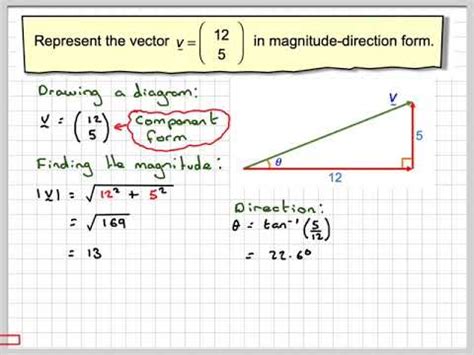 Represent the vector v = ( 12 5 ) in magnitude-direction form.
Drawing a diagram:
v = ( 12 5 ) Component form
Finding the magnitude:
|v| = √12² + 5²
= √169
= 13
v
5
θ
12
Direction:
θ = tan⁻¹ (5/12)
= 22.6°